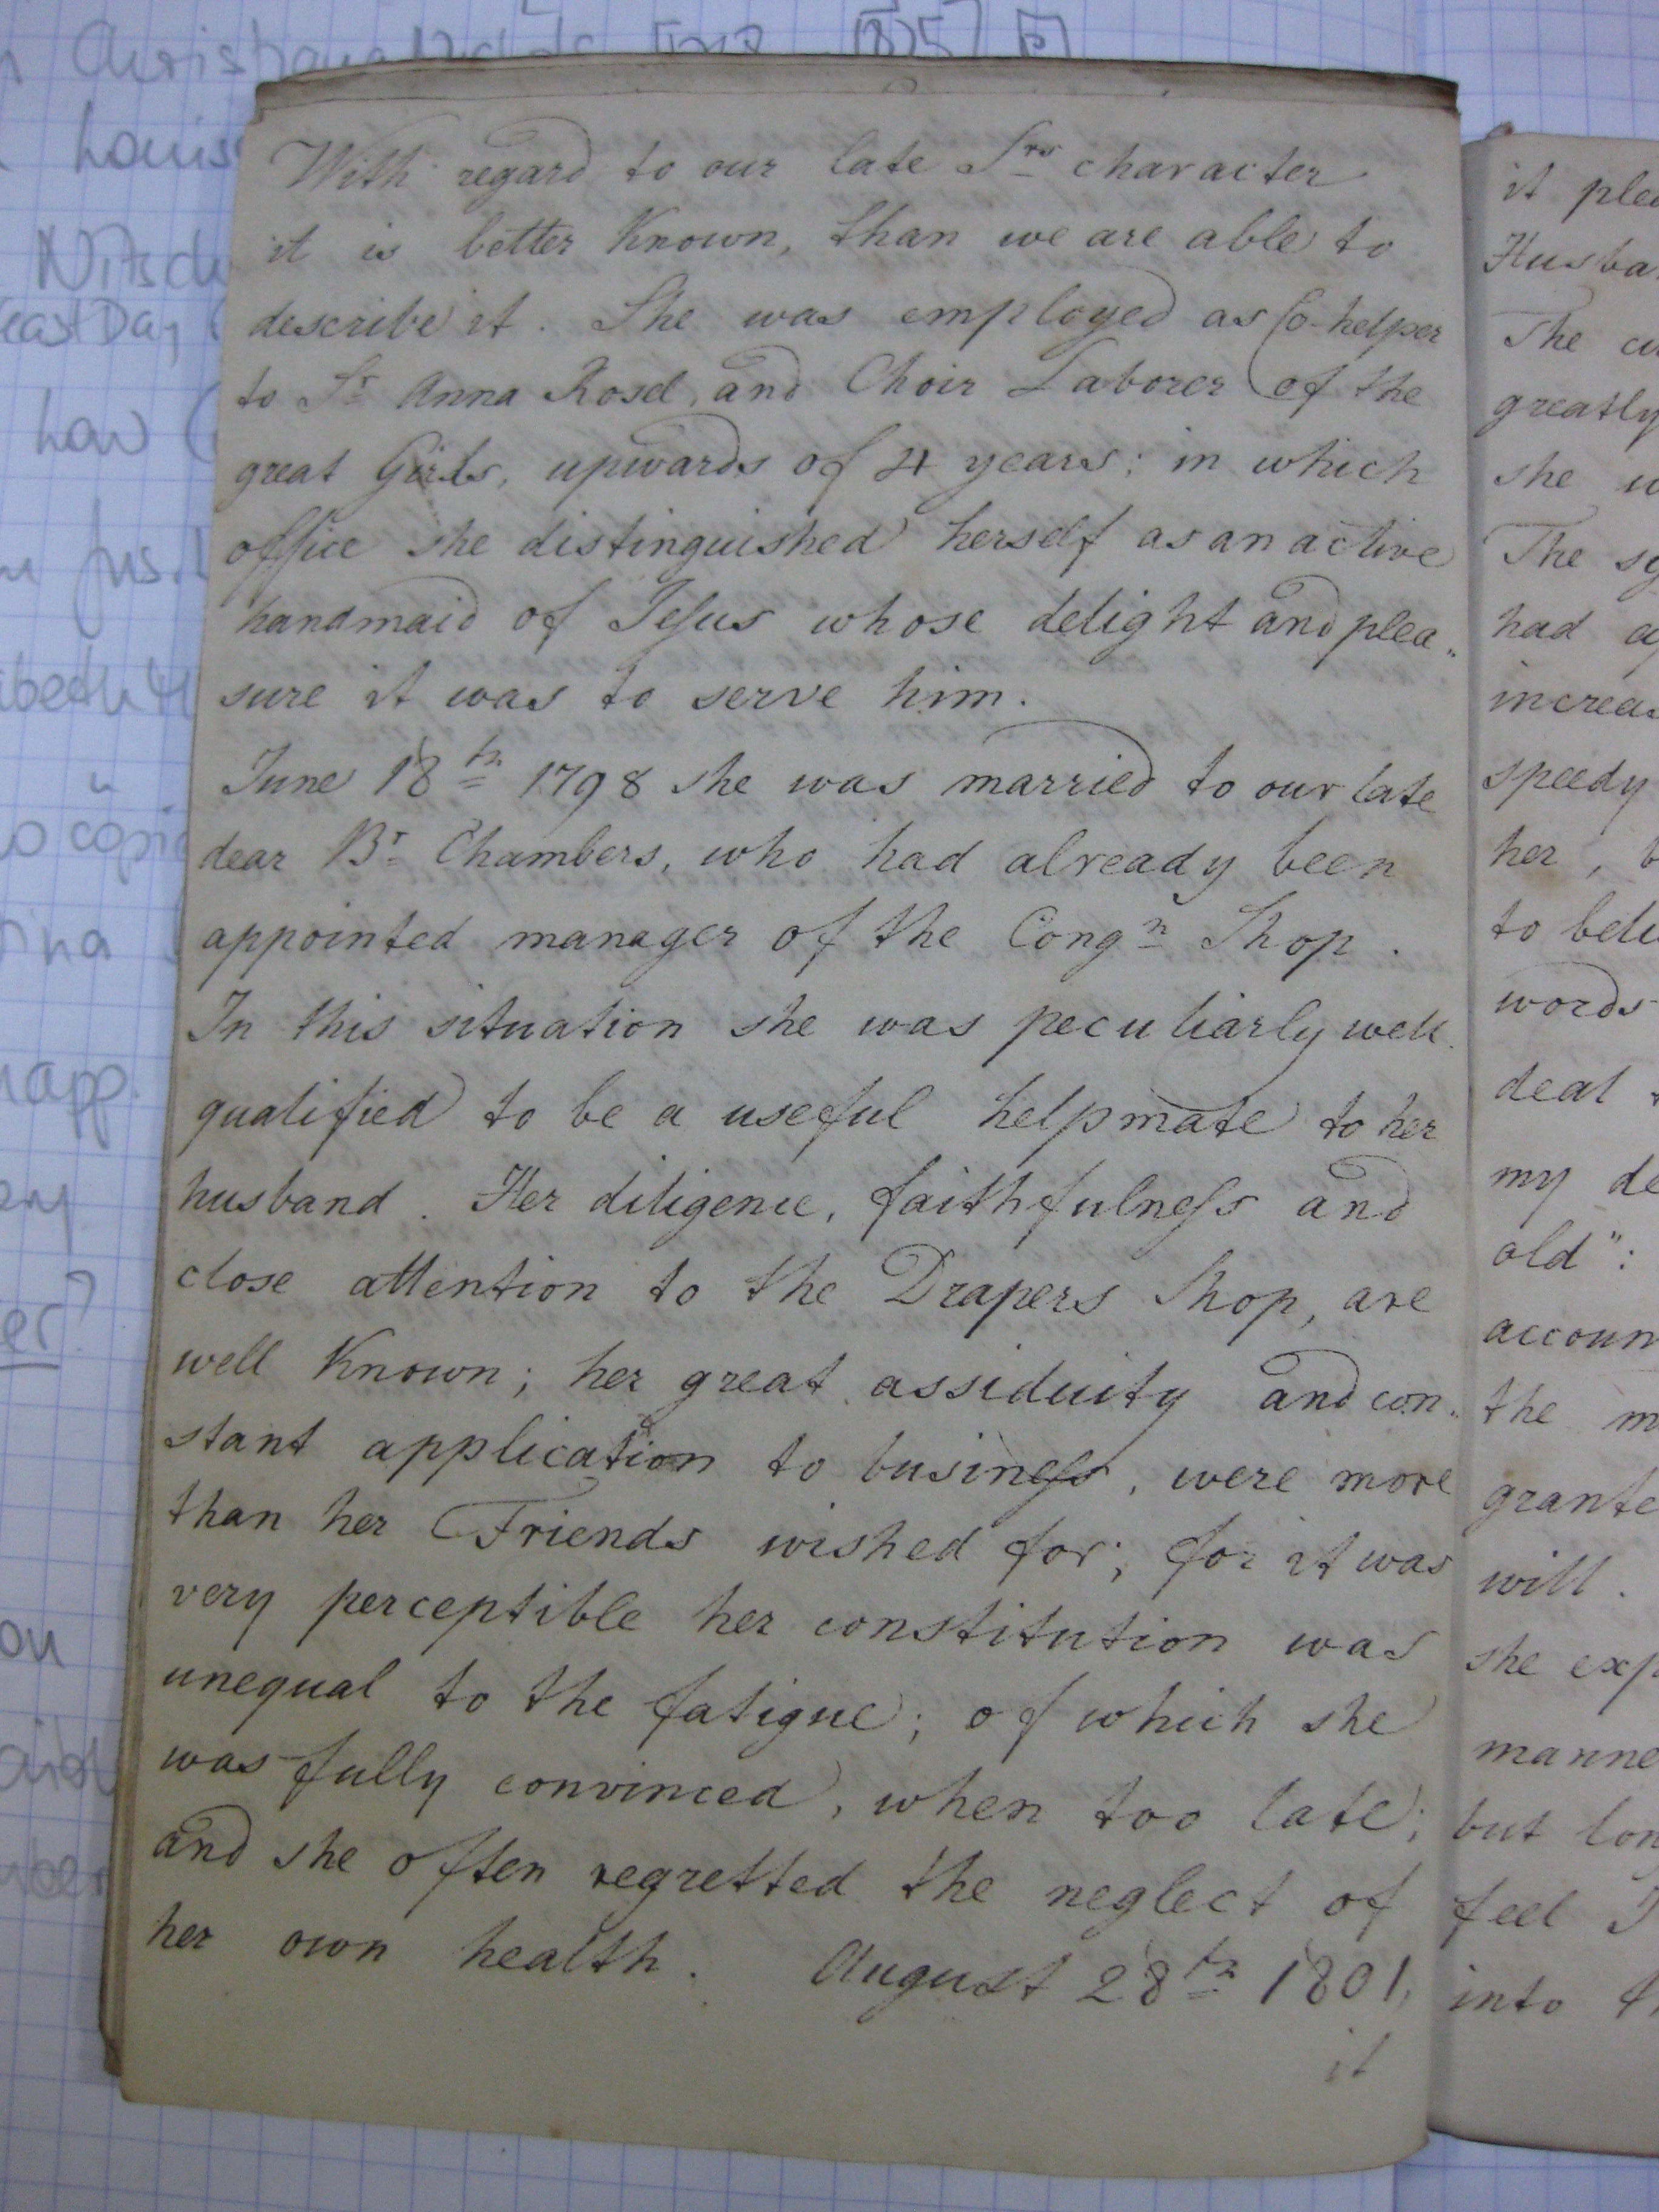 With regard to our late Srs character
it is better Known, than we are able to
describe it. She was employed as Co-helper
to Sr Anna Rosel, and Choir Laborer of the
great Girls, upwards of 4 years; in which
office she distinguished herself as an active
handmaid of Jesus whose delight and plea„
sure it was to serve him.
June 18th 1798 she was married to our late
dear Br Chambers, who had already been
appointed manager of the Congn Shop.
In this situation she was peculiarly well
qualified to be a useful helpmate to her
husband. Her diligence, faithfulneſs and
close attention to the Drapers Shop, are
well Known; her great assiduity and con„
stant application to busineſs, were more
than her Friends wished for; for it was
very perceptible her constitution was
unequal to the fatigue; of which she
was fully convinced, when too late;
and she often regretted the neglect of
her own health. August 28th 1801,
it
it
Husba
The
greatly
she
The
had
increas
speedy
her,
to
words
deal
my
old":
accoun
the
grante
will.
she exp
manne
but lon
feel
into